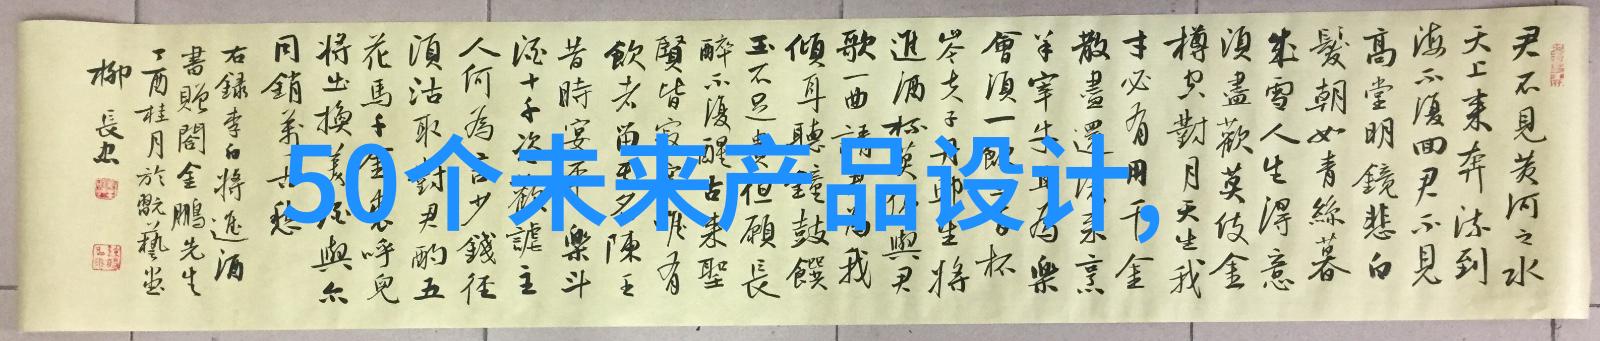 君不見黃河之水
天上來奔流到
海不復回君不見
高堂明鏡悲白
髮朝如青絲暮
成雪人生得意
須盡歡莫使金
樽空對月天生我
才必有用千金
散盡還復來烹
羊宰牛且為樂
會須一飲杯
岑夫子丹生將
進酒杯莫停與君
歌一曲請君為我
傾耳聽鐘鼓饌
玉不足貴但願長
醉不復醒古來聖
賢皆寂寞惟有
飲者留陳王
昔時宴平樂斗
酒十千恣歡謔主
人何為言少錢徑
須沽取對君酌五
花馬千金裘呼兒
將出換美酒與尔
同銷萬古愁
右錄李白將進酒
書贈閣金鵬先生
丁酉桂月於翫藝堂
柳長忠
50个未来产品设计,